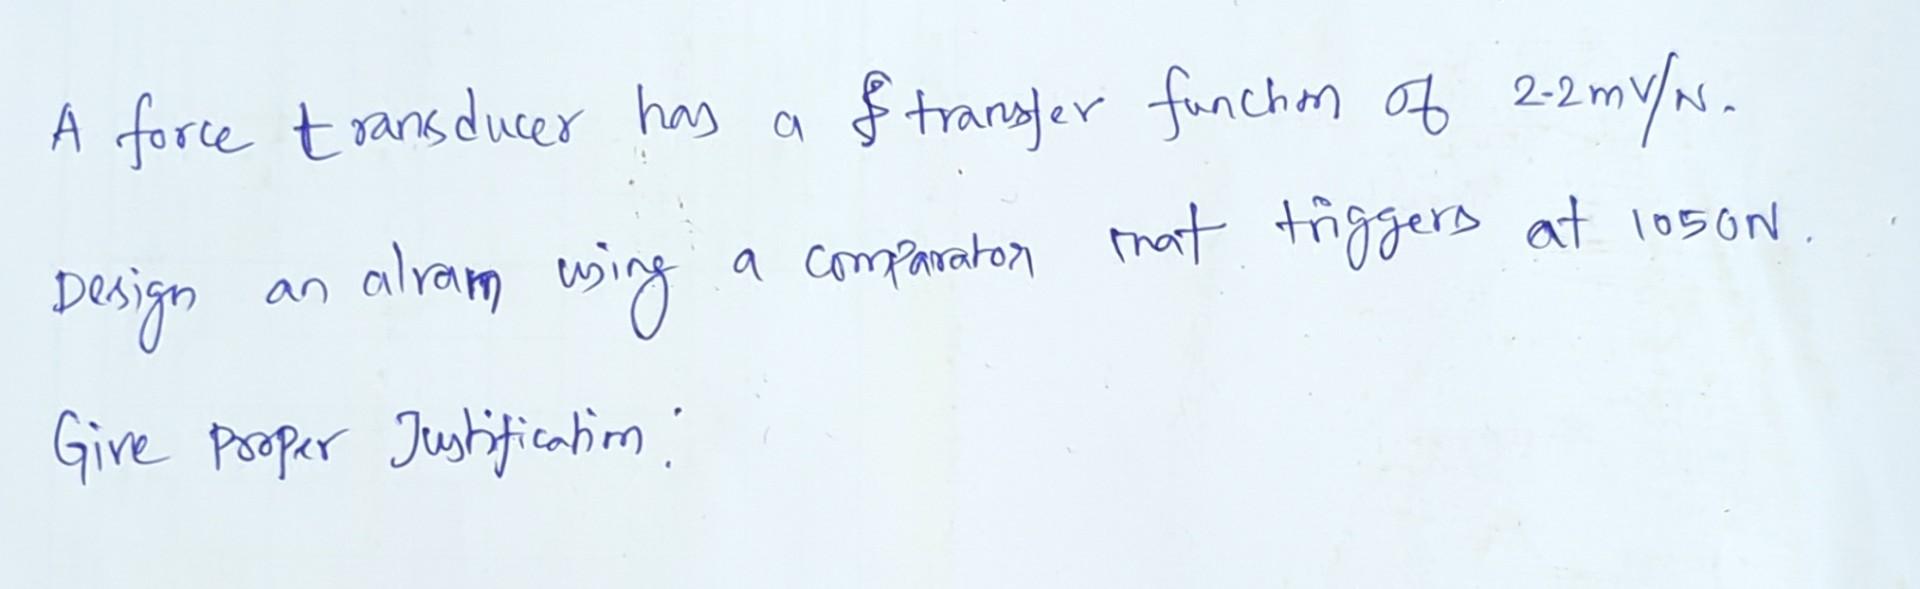 A force transducer has a transfer function of 2.2mV/N.
Design an alram using a comparator that triggers at 1050N.
Give Proper Justification.